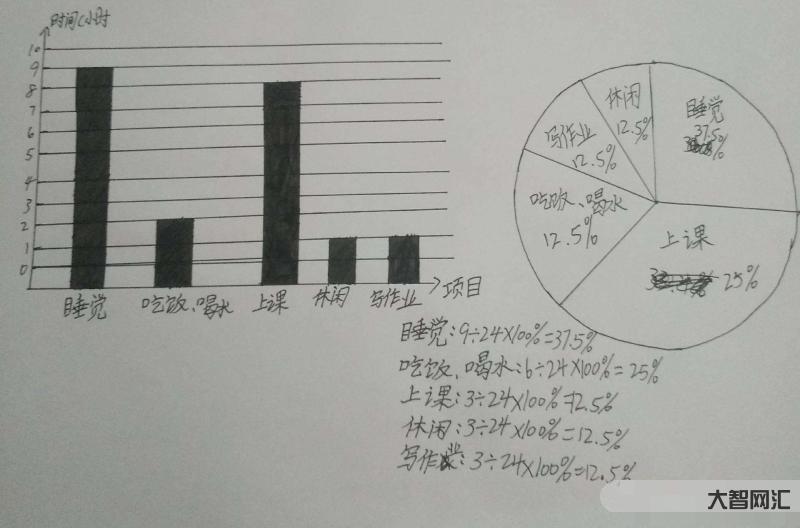 时间(小时
10
9
8
7
6
5
4
3
2
1
0
睡觉 吃饭、喝水 上课 休闲 写作业 项目
休闲
12.5%
睡觉
37.5%
写作业
12.5%
吃饭、喝水
12.5%
上课
25%
睡觉:9÷24×100%=37.5%
吃饭、喝水:6÷24×100%=25%
上课:3÷24×100%=12.5%
休闲:3÷24×100%=12.5%
写作业:3÷24×100%=12.5%
大智网汇